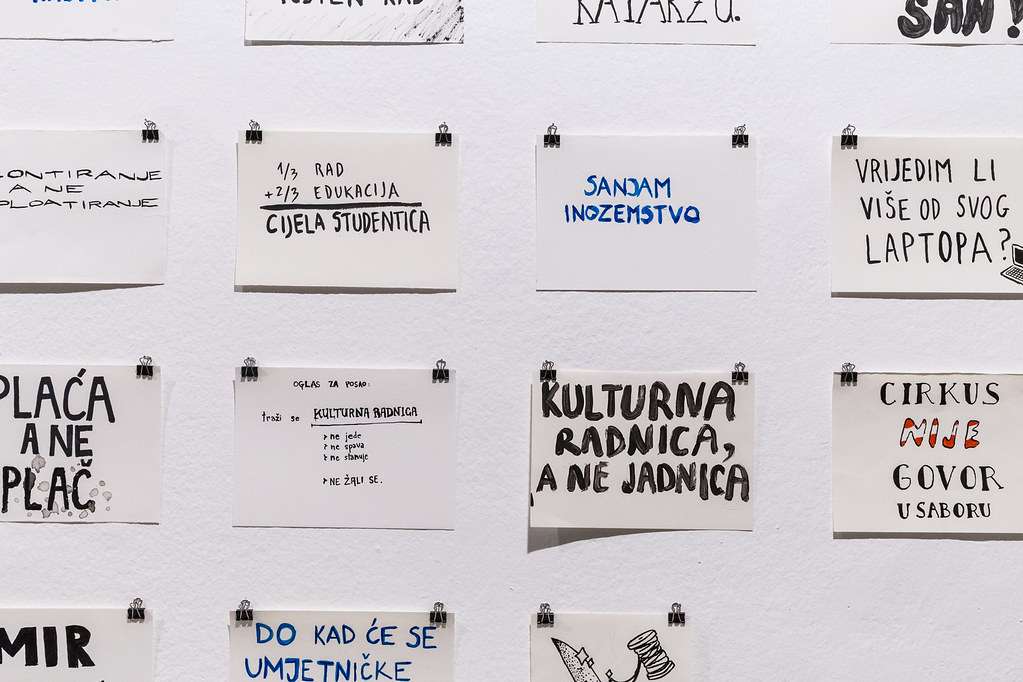 RAD
KATARZU.
SAN!
ONTIRANJE
A NE
PLOATIRANJE
1/3 RAD
+2/3 EDUKACIJA
CIJELA STUDENTICA
SANJAM
INOZEMSTVO
VRIJEDIM LI
VIŠE OD SVOG
LAPTOPA?
PLAĆA
A NE
PLAČ
OGLAS ZA POSAO:
traži se KULTURNA RADNICA
> ne jede
> ne spava
> ne stanuje
> NE ŽALI SE.
KULTURNA
RADNICA,
A NE JADNICA
CIRKUS
NIJE
GOVOR
U SABORU
MIR
DO KAD ĆE SE
UMJETNIČKE